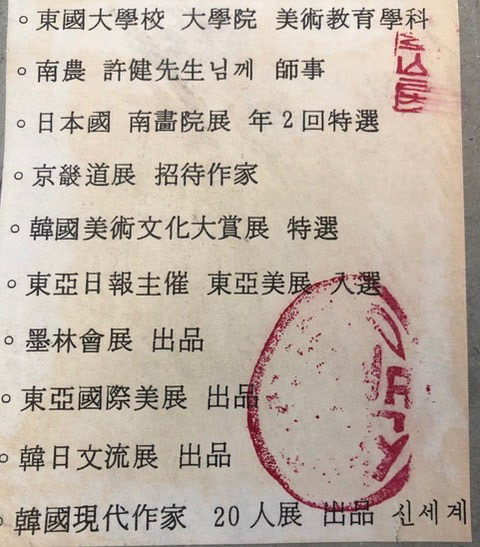 ○東國大學校 大學院 美術教育學科
○南農 許健先生님께 師事
○日本國 南畵院展 年2回特選
○京畿道展 招待作家
○韓國美術文化大賞展 特選
○東亞日報主催 東亞美展 入選
○墨林會展 出品
○東亞國際美展 出品
○韓日文流展 出品
○韓國現代作家 20人展 出品 신세계